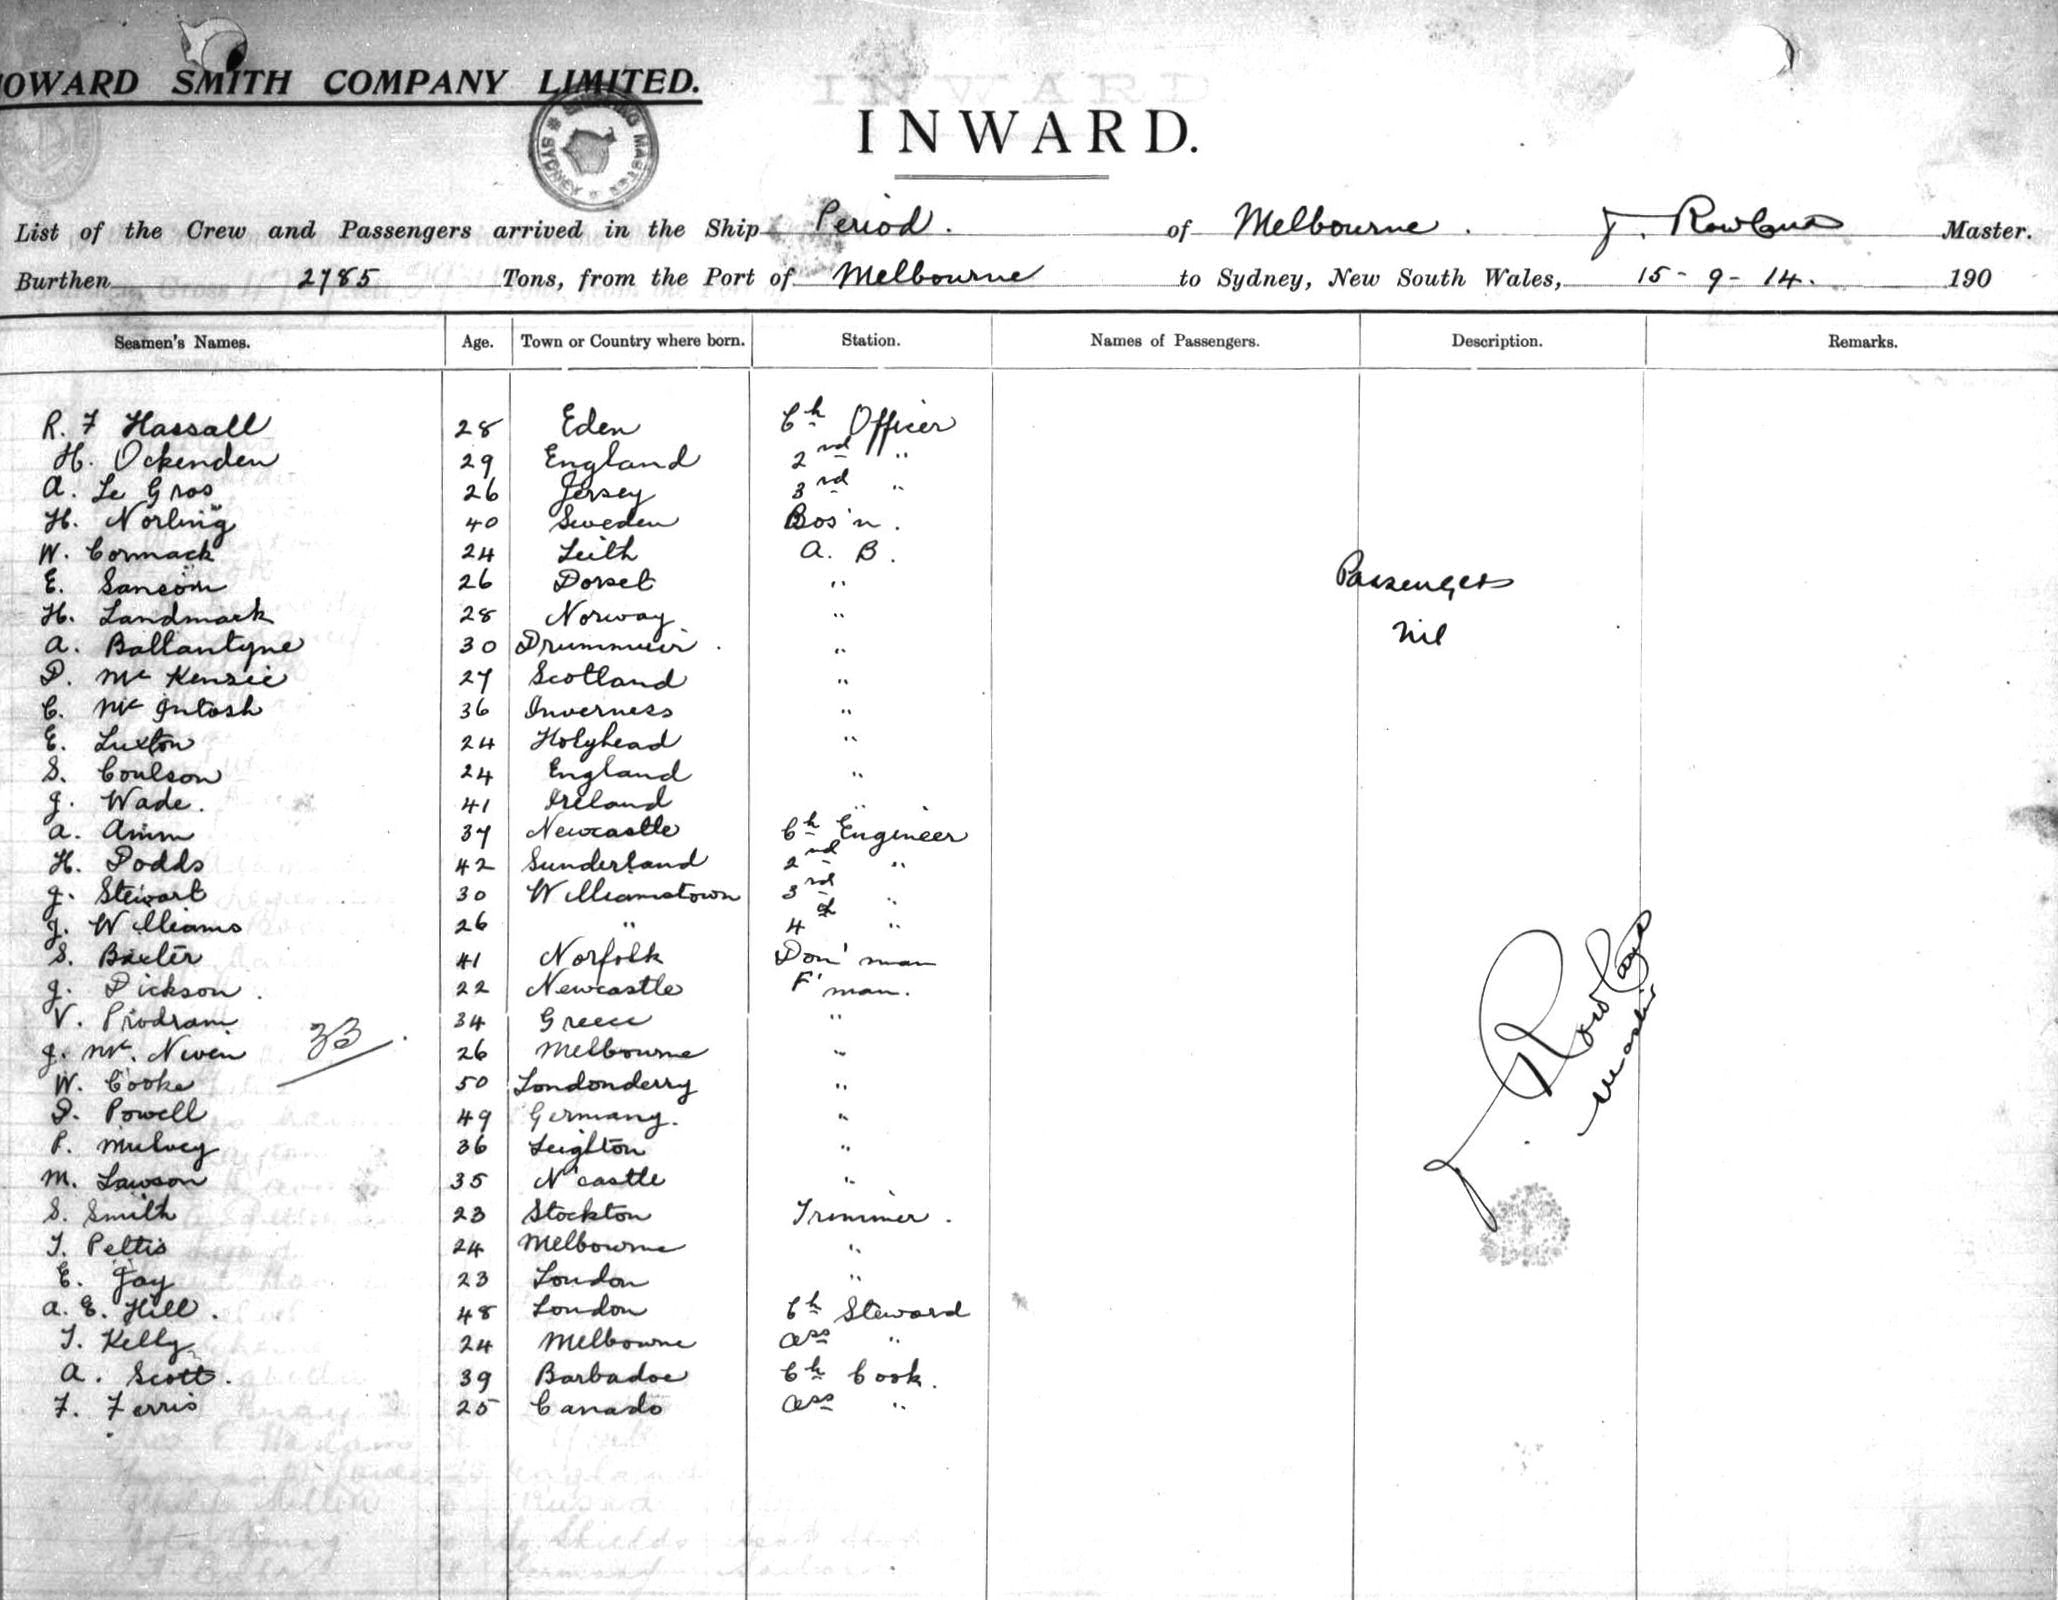 HOWARD SMITH COMPANY LIMITED.
SHIPPING MASTER SYDNEY
INWARD.
List of the Crew and Passengers arrived in the Ship Period. of Melbourne. J. Rowland Master.
Burthen 2785 Tons, from the Port of Melbourne to Sydney, New South Wales, 15-9-14. 190
Seamen's Names. Age. Town or Country where born. Station. Names of Passengers. Description. Remarks.
R. F Hassall 28 Eden Ch Officer
H. Ockenden 29 England 2nd "
A. Le Gros 26 Jersey 3rd "
H. Norling 40 Sweden Bos'n.
W. Cormack 24 Leith A. B.
E. Sansom 26 Dorset "
Passengers
H. Landmark 28 Norway "
nil
A. Ballantyne 30 Drummuir. "
D. McKenzie 27 Scotland "
C. McIntosh 36 Inverness "
E. Luxton 24 Holyhead "
S. Coulson 24 England "
J. Wade. 41 Ireland "
A. Amm 37 Newcastle Ch Engineer
H. Dodds 42 Sunderland 2nd "
J. Stewart 30 Williamstown 3rd "
J. Williams 26 " 4th "
S. Baxter 41 Norfolk Don' man
J. Dickson. 22 Newcastle F' man.
V. Prodram 34 Greece "
J. Mc. Niven 26 Melbourne "
33.
W. Cooke 50 Londonderry "
D. Powell 49 Germany. "
P. Mulvey 36 Leighton "
M. Lawson 35 N'castle "
S. Smith 23 Stockton Trimmer.
T. Pettis 24 Melbourne "
E. Jay 23 London "
A. E. Hill. 48 London Ch Steward
T. Kelly 24 Melbourne Ass "
A. Scott. 39 Barbadoe Ch Cook.
F. Ferris 25 Canada Ass "
J. Rowland
Master